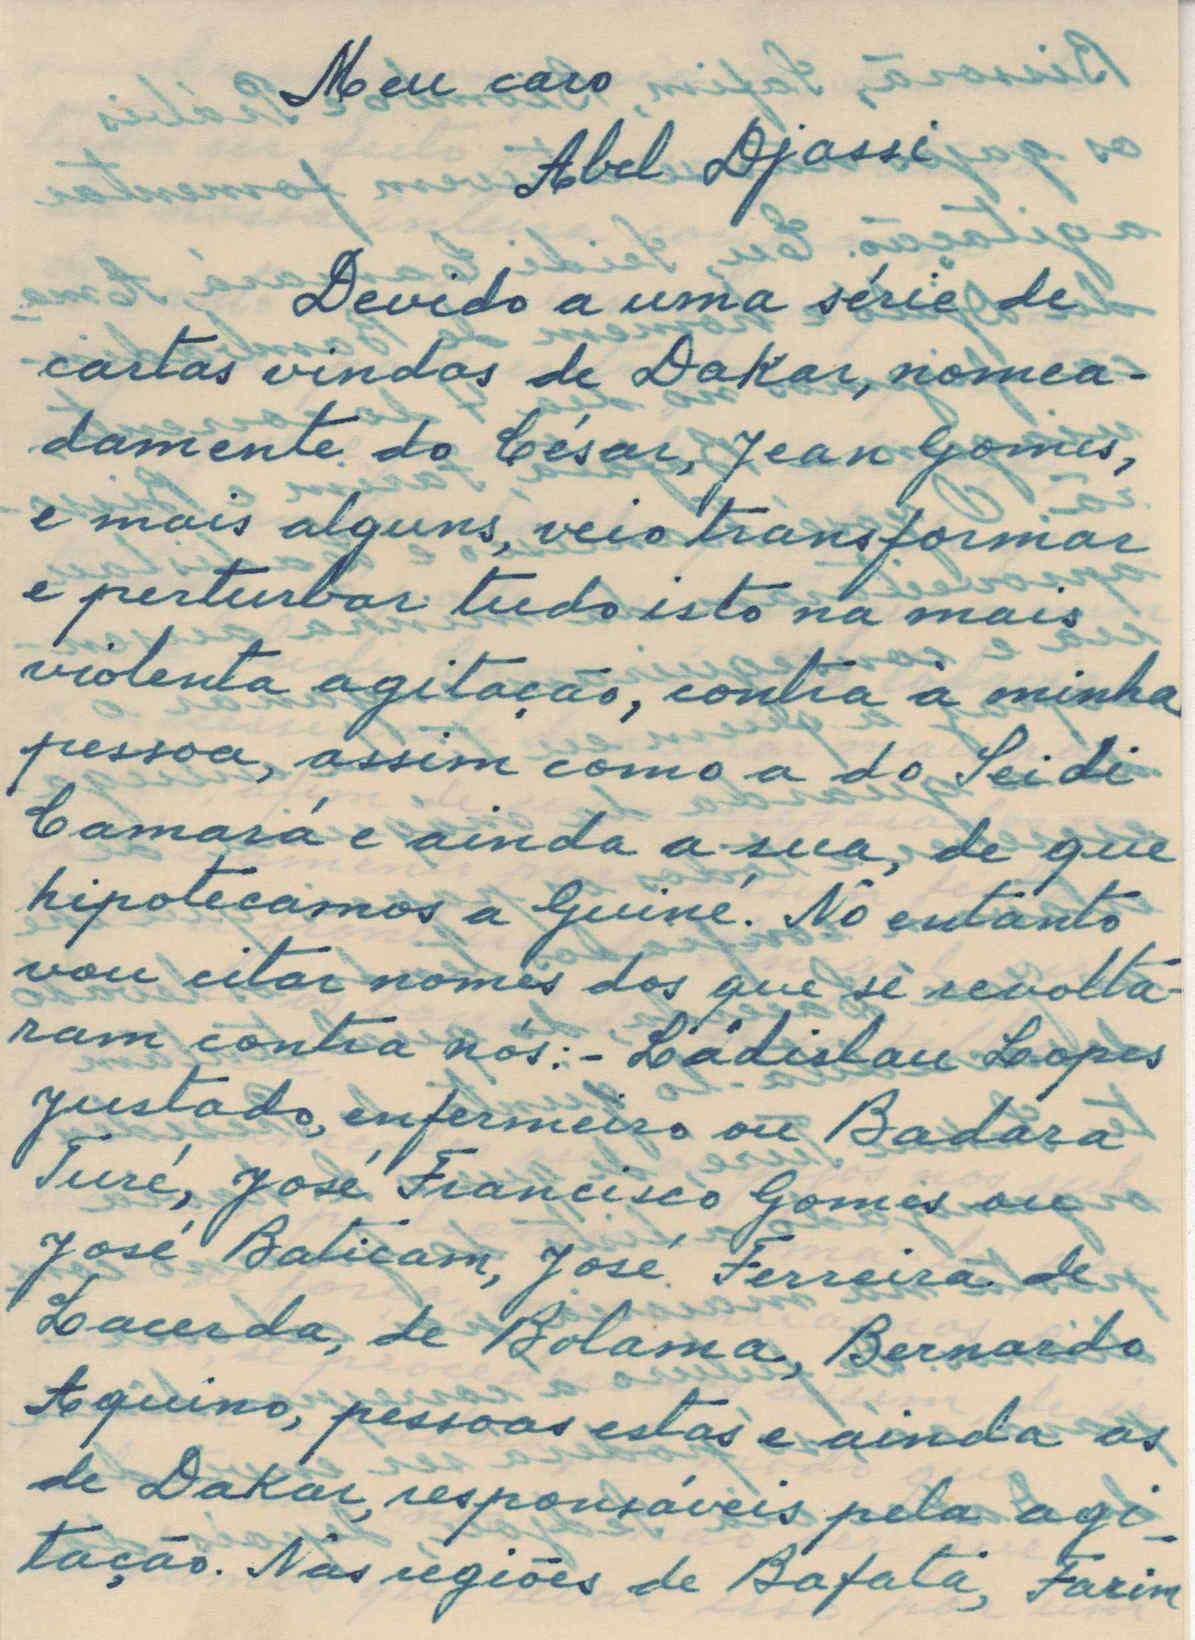 Meu caro
Abel Djassi
Devido a uma série de
cartas vindas de Dakar, nomea-
damente do César, Jean Gomes,
e mais alguns, veio transformar
e perturbar tudo isto na mais
violenta agitação, contra à minha
pessoa, assim como a do Seidi
Camará e ainda a sua, de que
hipotecamos a Guiné. No entanto
vou citar nomes dos que se revolta-
ram contra nós:- Ládislau Lopes
Justado, enfermeiro ou Badara
Turé, José Francisco Gomes ou
José Baticam, José Ferreira de
Lacerda, de Bolama, Bernardo
Aquino, pessoas estas e ainda as
de Dakar, responsáveis pela agi-
tação. Nas regiões de Bafatá, Farim